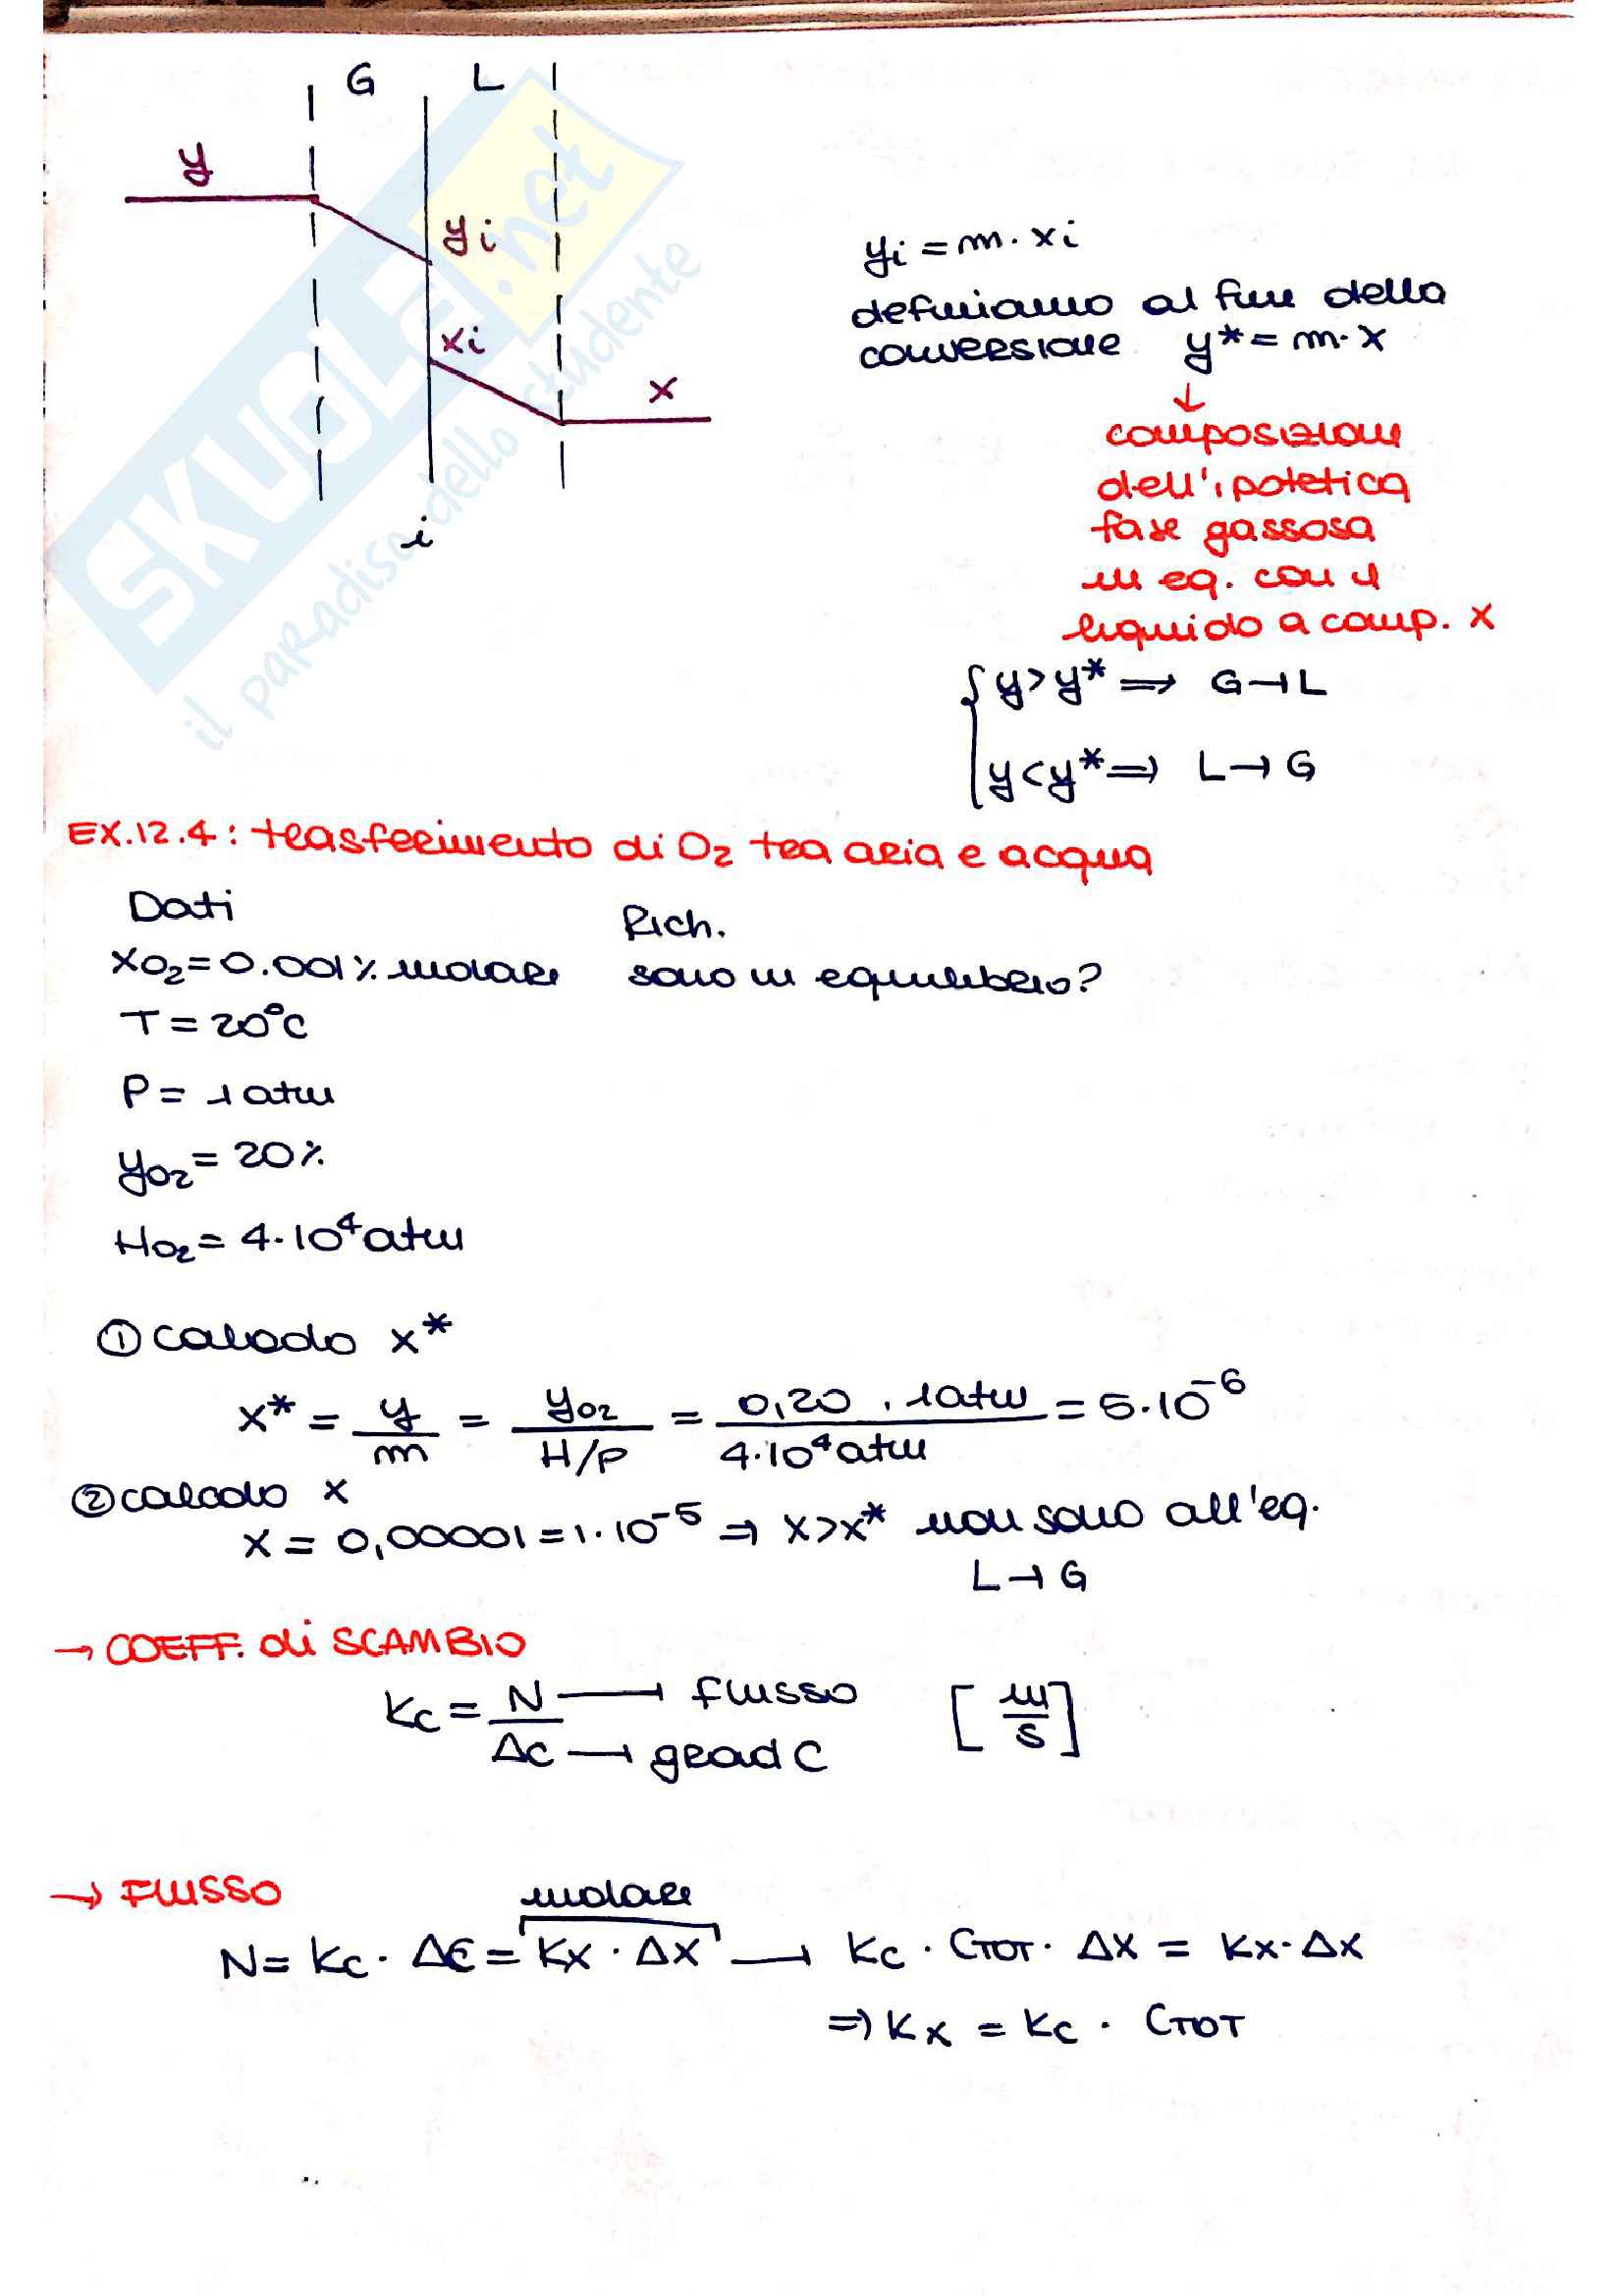 G L
y
yi
xi
x
i
SKUOLA.net
il paradiso dello studente
yi = m · xi
definiamo al fine della
conversione y* = m · x
↓
composizione
dell'ipotetica
fase gassosa
in eq. con il
liquido a comp. x
{ y > y* ⟹ G → L
y < y* ⟹ L → G
EX.12.4: trasferimento di O2 tra aria e acqua
Dati Rich.
XO2 = 0.001% molare sono in equilibrio?
T = 20°C
P = 1 atm
yO2 = 20%
HO2 = 4·10⁴ atm
① calcolo x*
x* = y/m = yO2/(H/P) = (0,20 · 1 atm)/(4·10⁴ atm) = 5·10⁻⁶
② calcolo x
x = 0,00001 = 1·10⁻⁵ ⇒ x > x* non sono all'eq.
L → G
→ COEFF. di SCAMBIO
Kc = N/ΔC N → flusso [m/s]
ΔC → grad C
→ FLUSSO molare
N = Kc · ΔC = Kx · Δx → Kc · CTOT · Δx = Kx · Δx
⇒ Kx = Kc · CTOT